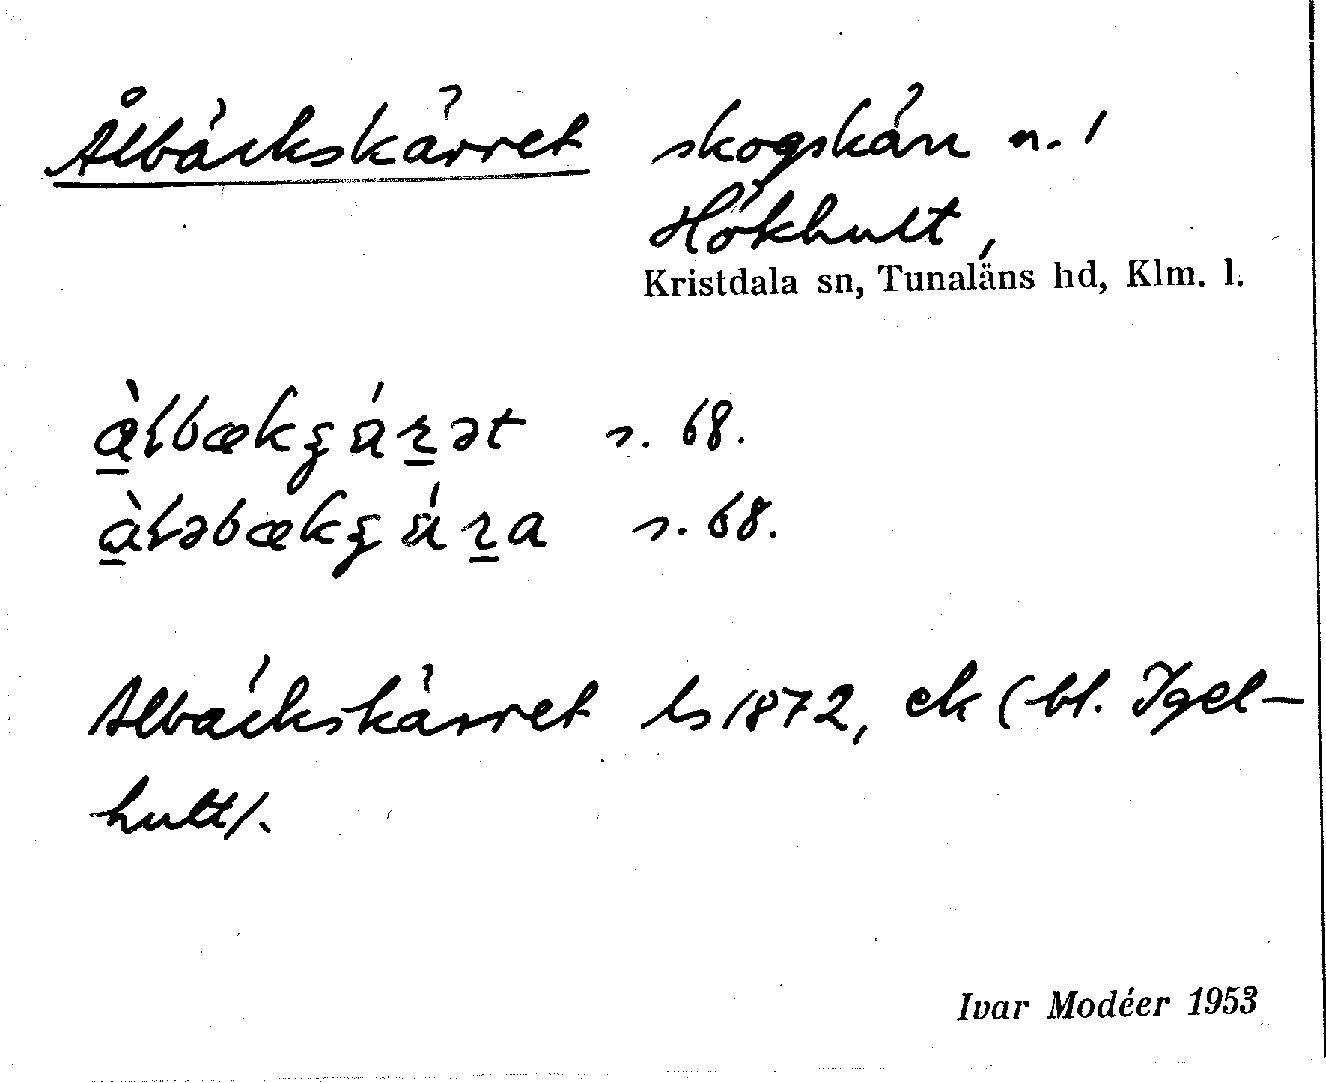 Ålbäckskärret skogskärr n. 1
Hökhult,
Kristdala sn, Tunaläns hd, Klm. l.
s. 68.
s. 68.
Albäckskärret ls 1872, ek (bl. Igel-
hult/.
Ivar Modéer 1953